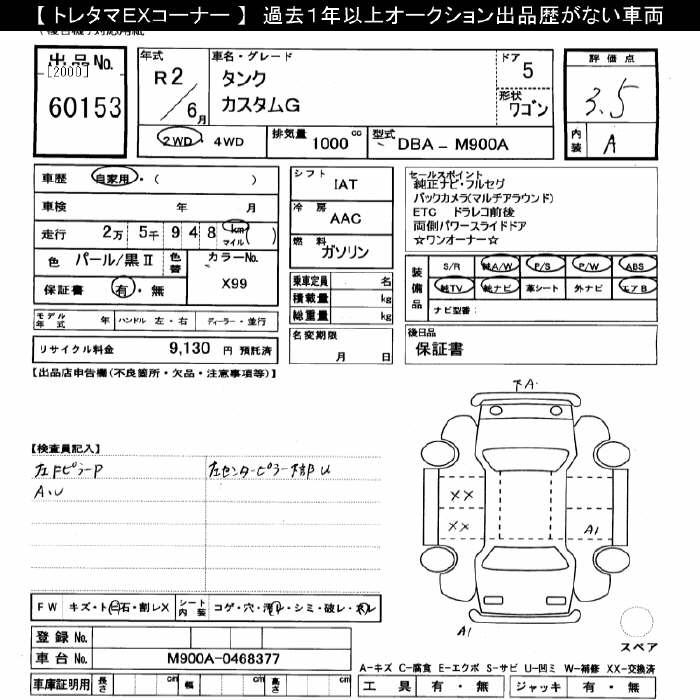 【トレタマEXコーナー】 過去1年以上オークション出品歴がない車両
出品No. [2000] 60153
年式 R2/6月
車名・グレード タンク カスタムG
ドア 5
形状 ワゴン
2WD・4WD
排気量 1000 cc
型式 DBA－M900A
評価点 3.5
内装 A
車歴 自家用・( )
車検 年 月
走行 2万 5千 9 4 8 km マイル ( )
色 パール/黒Ⅱ 色替 カラーNo. X99
保証書 有・無
モデル年式 年 ハンドル 左・右 ディーラー・並行
リサイクル料金 9,130 円 預託済
シフト IAT
冷房 AAC
燃料 ガソリン
乗車定員 名
積載量 kg
総重量 kg
名変期限 月 日
セールスポイント
純正ナビ・フルセグ
バックカメラ(マルチアラウンド)
ETC ドラレコ前後
両側パワースライドドア
☆ワンオーナー☆
装備品 S/R 純A/W P/S P/W ABS
純TV 純ナビ 革シート 外ナビ エアB
ナビ型番:
後日品
保証書
【出品店申告欄(不良箇所・欠品・注意事項等)】
【検査員記入】
左FピラーP 左センターピラー下部U
A.U
下A.
XX
XX
A1
A1
スペア
FW キズ・ト・石・割レX シート内装 コゲ・穴・汚レ・シミ・破レ・スレ
登録No.
車台No. M900A-0468377
車庫証明用 長さ cm 幅 cm 高さ cm
A-キズ C-腐食 E-エクボ S-サビ U-凹ミ W-補修 XX-交換済
工具 有・無 ジャッキ 有・無